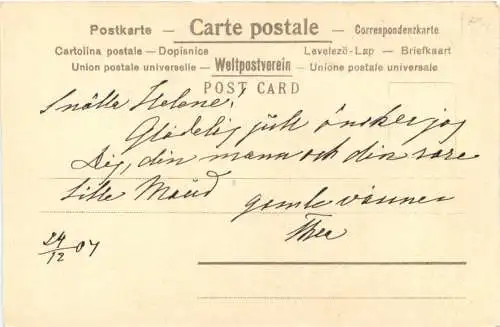 Postkarte — Carte postale — Correspondenzkarte
Cartolina postale — Dopisnice Levelező-Lap — Briefkaart
Union postale universelle — Weltpostverein — Unione postale universale
POST CARD
Snälla Helene!
Glädelig jul önsker jag
Dig, din mann och din rare
lille Maud
gamle vännen
Thea
24/12 07